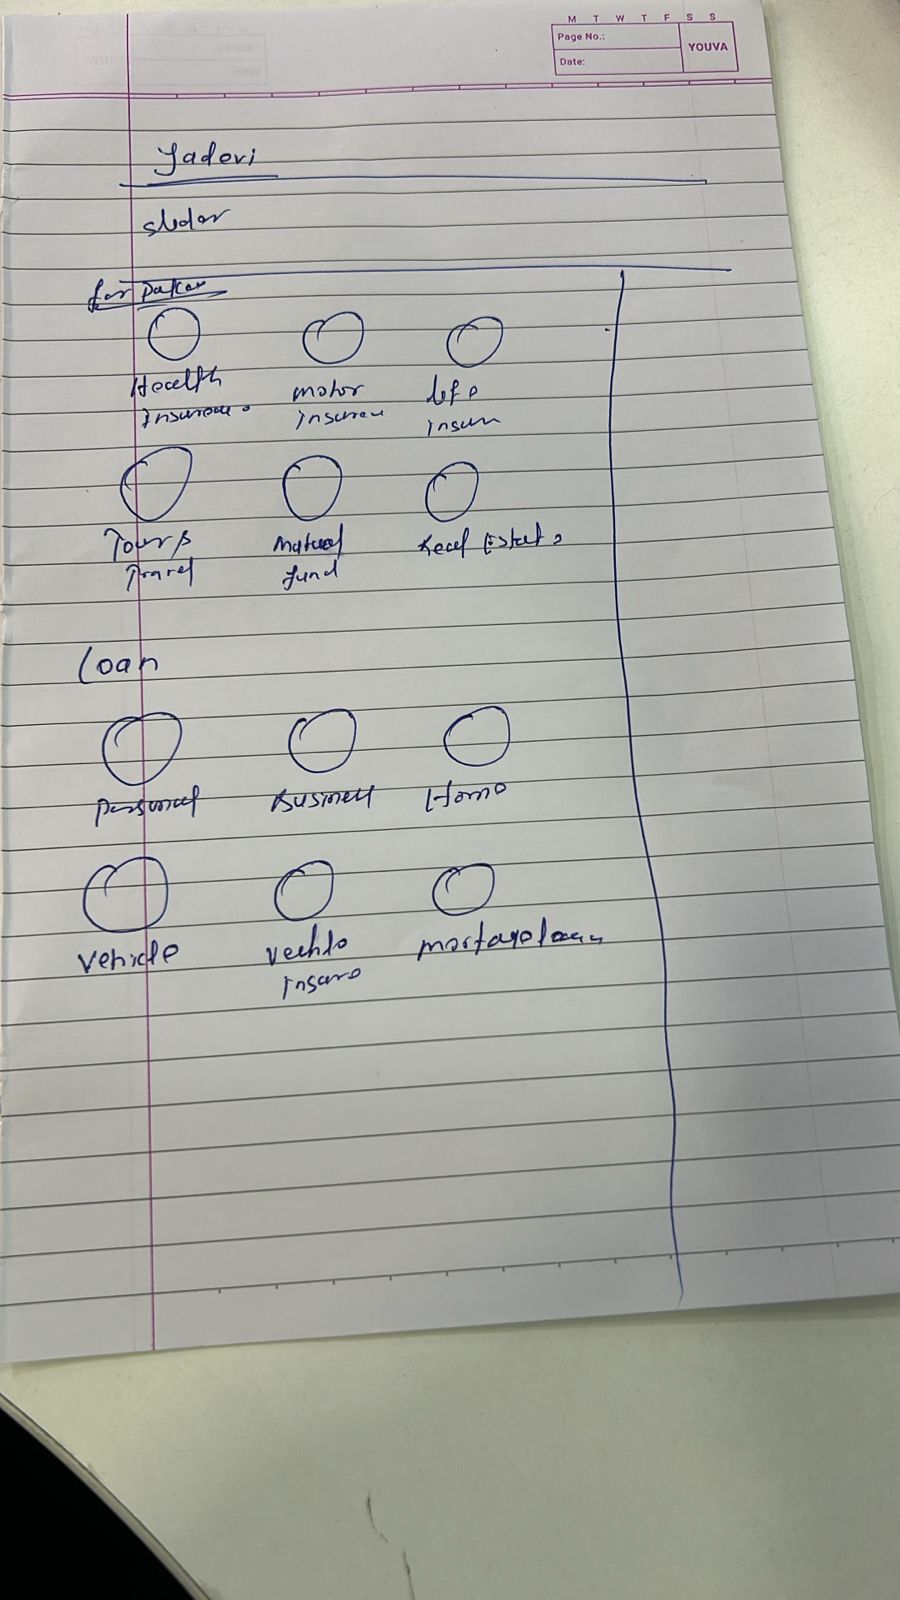 M T W T F S S
Page No.:
YOUVA
Date:
Jadevi
slider
for
Health motor life
Insurance insuran insun
Tours Mutual Real Estate
Travel fund
Loan
Personal Business Home
Vehicle Vechle mortage loan
Insare